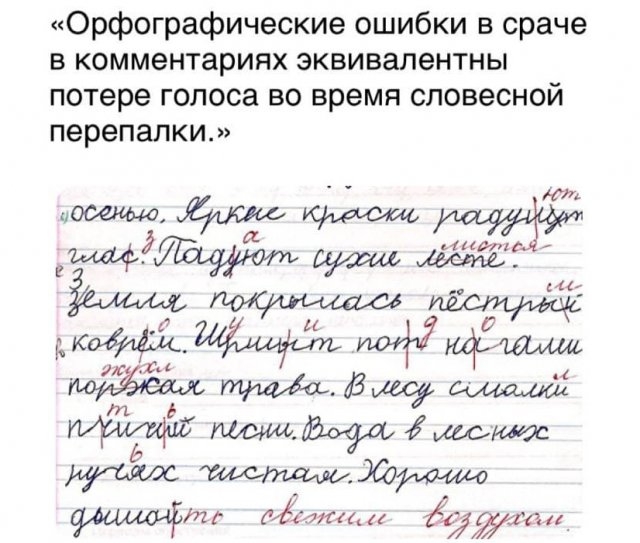 «Орфографические ошибки в сраче
в комментариях эквивалентны
потере голоса во время словесной
перепалки.»
ют
осенью. Яркие краски радуи
з а листья
глас. Падуют сухие лесте.
З м
земля покрылась пёстрый
о у и д о
коврём. Шрмит пот нагами
жухл л
порэкая трава. В лесу смалки
т ь
пчичий песни. Вода в лесных
ь
ручях чистая. Хорошо
дышоить свежим воздухом